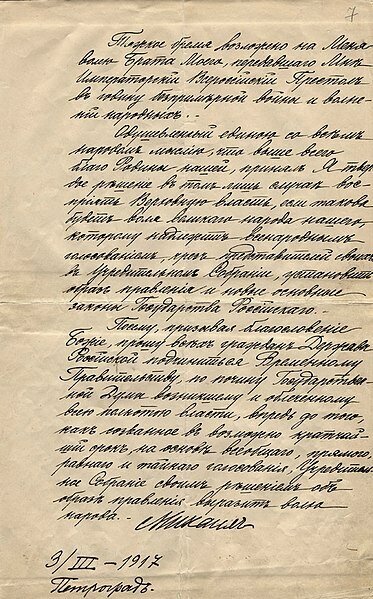 7
Тяжкое бремя возложено на Меня
волею Брата Моего, передавшаго Мнѣ
Императорскiй Всероссiйскiй Престолъ
въ годину безпримѣрной войны и волне-
нiй народныхъ.
Одушевленный единою со всѣмъ
народомъ мыслiю, что выше всего
благо Родины нашей, принялъ Я твер-
дое рѣшенiе въ томъ лишь случаѣ вос-
прiять Верховную власть, если такова
будетъ воля великаго народа нашего,
которому надлежитъ всенароднымъ
голосованiемъ, чрезъ представителей своихъ
въ Учредительномъ Собранiи, установить
образъ правленiя и новые основные
законы Государства Россiйскаго.
Посему, призывая благословенiе
Божiе, прошу всѣхъ гражданъ Державы
Россiйской подчиниться Временному
Правительству, по почину Государствен-
ной Думы возникшему и облеченному
всею полнотою власти, впредь до того
какъ созванное въ возможно кратчай-
шiй срокъ, на основѣ всеобщаго, прямого,
равнаго и тайнаго голосованiя, Учредитель-
ное Собранiе своимъ рѣшенiемъ объ
образѣ правленiя выразитъ волю
народа.
Михаилъ
3/III – 1917
Петроградъ.